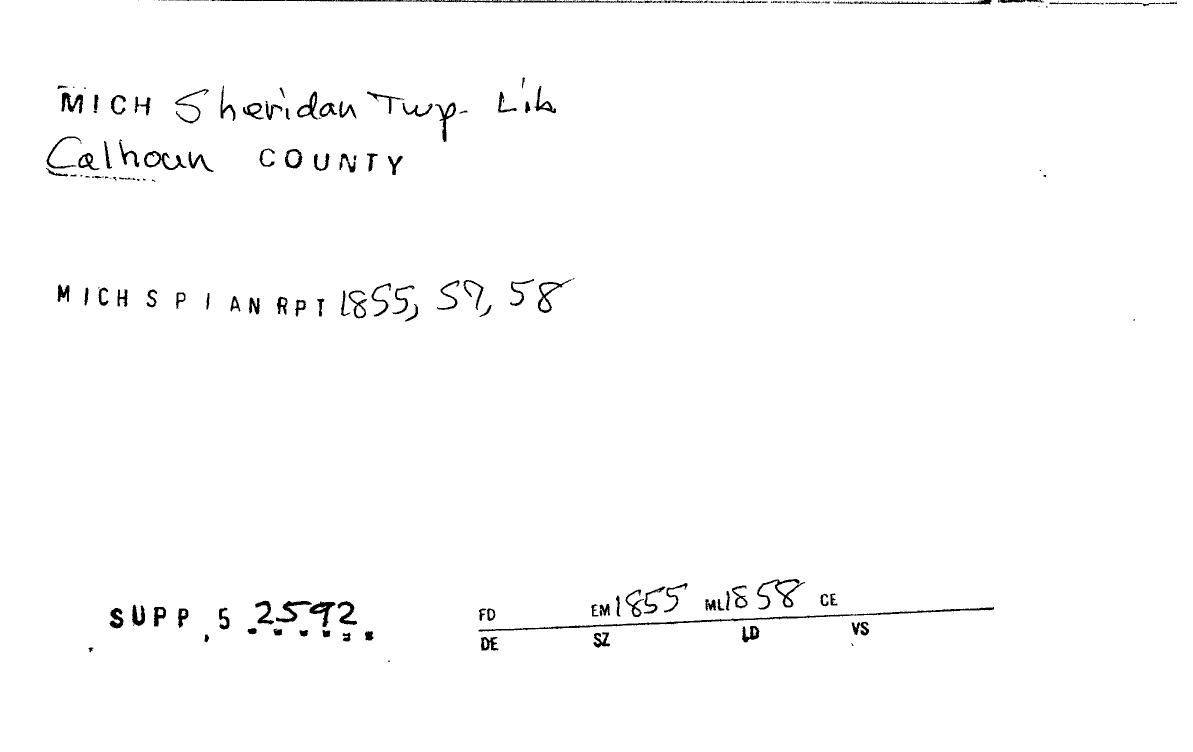 MICH Sheridan Twp. Lib
Calhoun COUNTY
MICH S P I AN RPT 1855, 57, 58
SUPP, 5 2592 FD EM 1855 ML 1858 CE
DE SZ LD VS